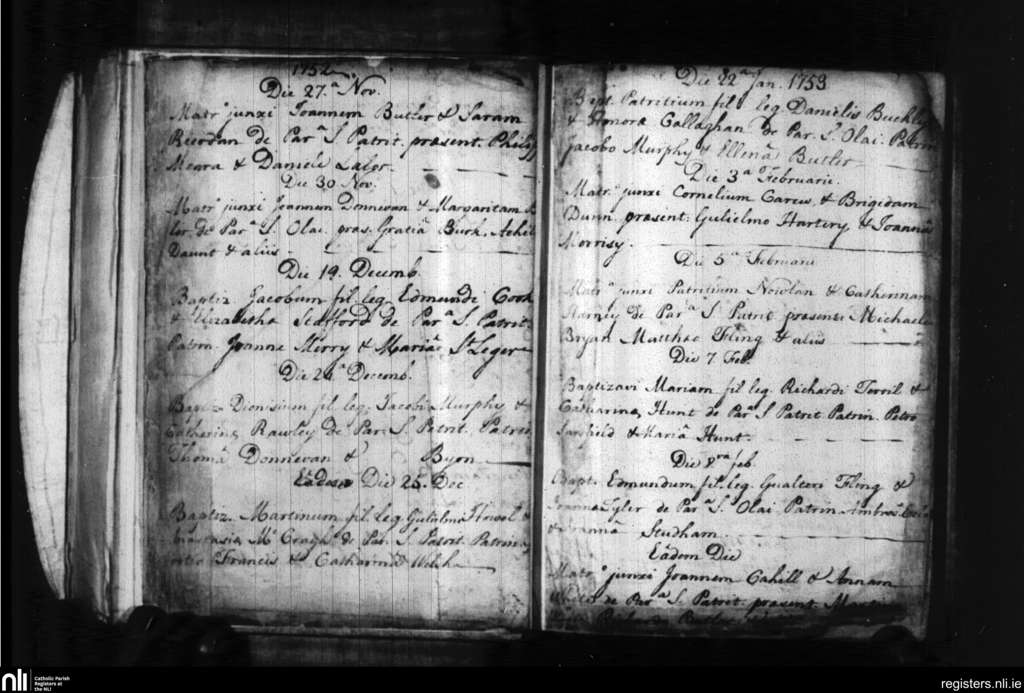 1752
Die 27.ª Nov.
Matr.º junxi Joannem Butler & Saram
Reordan de Par.ª S. Patrit. præsent. Philip
Meara & Daniele Lalor.
Die 30 Nov.
Matr.º junxi Joannem Donnevan & Margaritam
ler de Par.ª S. Olai. præs. Gratiâ Burk,
Daunt & aliis
Die 19. Decemb.
Baptiz. Jacobum fil. leg. Edmundi Cook
& Elizabetha Stafford de Par.ª S. Patrit.
Patrin. Joanne Merry & Mariâ S.t Leger
Die 24ª Decemb.
Baptiz. Dionisium fil. leg. Jacobi Murphy &
Catharina Rawley de Par. S. Patrit. Patrin
Thomâ Donnevan & Byon
Eâdem Die 25. Dec
Baptiz. Martinum fil. leg. Gulielmi &
Anastasia M.c Cragh de Par. S. Patrit. Patrin
Francis & Catharina Welch
Die 22ª Jan. 1753
Bapt. Patritium fil leg Danielis Buckley
& Honora Callaghan de Par. S. Olai. Patrin
Jacobo Murphy & Ellenâ Butler
Die 3ª Februarii.
Matr.º junxi Cornelium Careu, & Brigidam
Dunn. præsent: Gulielmo Hartery, & Joannâ
Morrisy.
Die 5ª Februarii
Matr.º junxi Patritium Nowlan & Catharinam
de Par.ª S. Patrit præsente Michaele
Bryan Matthæo Fling & aliis
Die 7. Feb.
Baptizavi Mariam fil leg. Richardi Torril &
Catharina Hunt de Par.ª S Patrit Patrin. Petro
Sarsfield & Mariâ Hunt.
Die 8.va feb.
Bapt. Edmundum fil. leg. Gualteri Fling &
Joanna Tyler de Par.ª S. Olai Patrin Ambros.
& Joannâ Studham.
Eâdem Die
Matr.º junxi Joannem Cahill & Annam
de Par.ª S. Patrit. præsent.
nli
Catholic Parish
Registers at
the NLI
registers.nli.ie